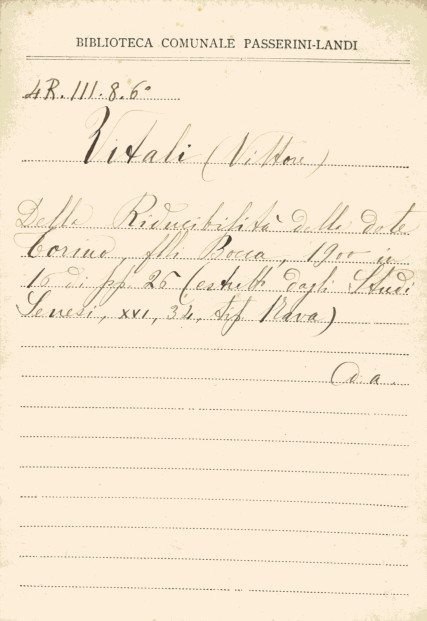 BIBLIOTECA COMUNALE PASSERINI-LANDI
4R. III. 8. 6°
Vitali (Vittore)
Della Riducibilità della dote
Torino, flli Bocca, 1900 in
16 di pp. 26 (estratto dagli Studi
Senesi, XVI, 34, tip. Nava)
D. a.